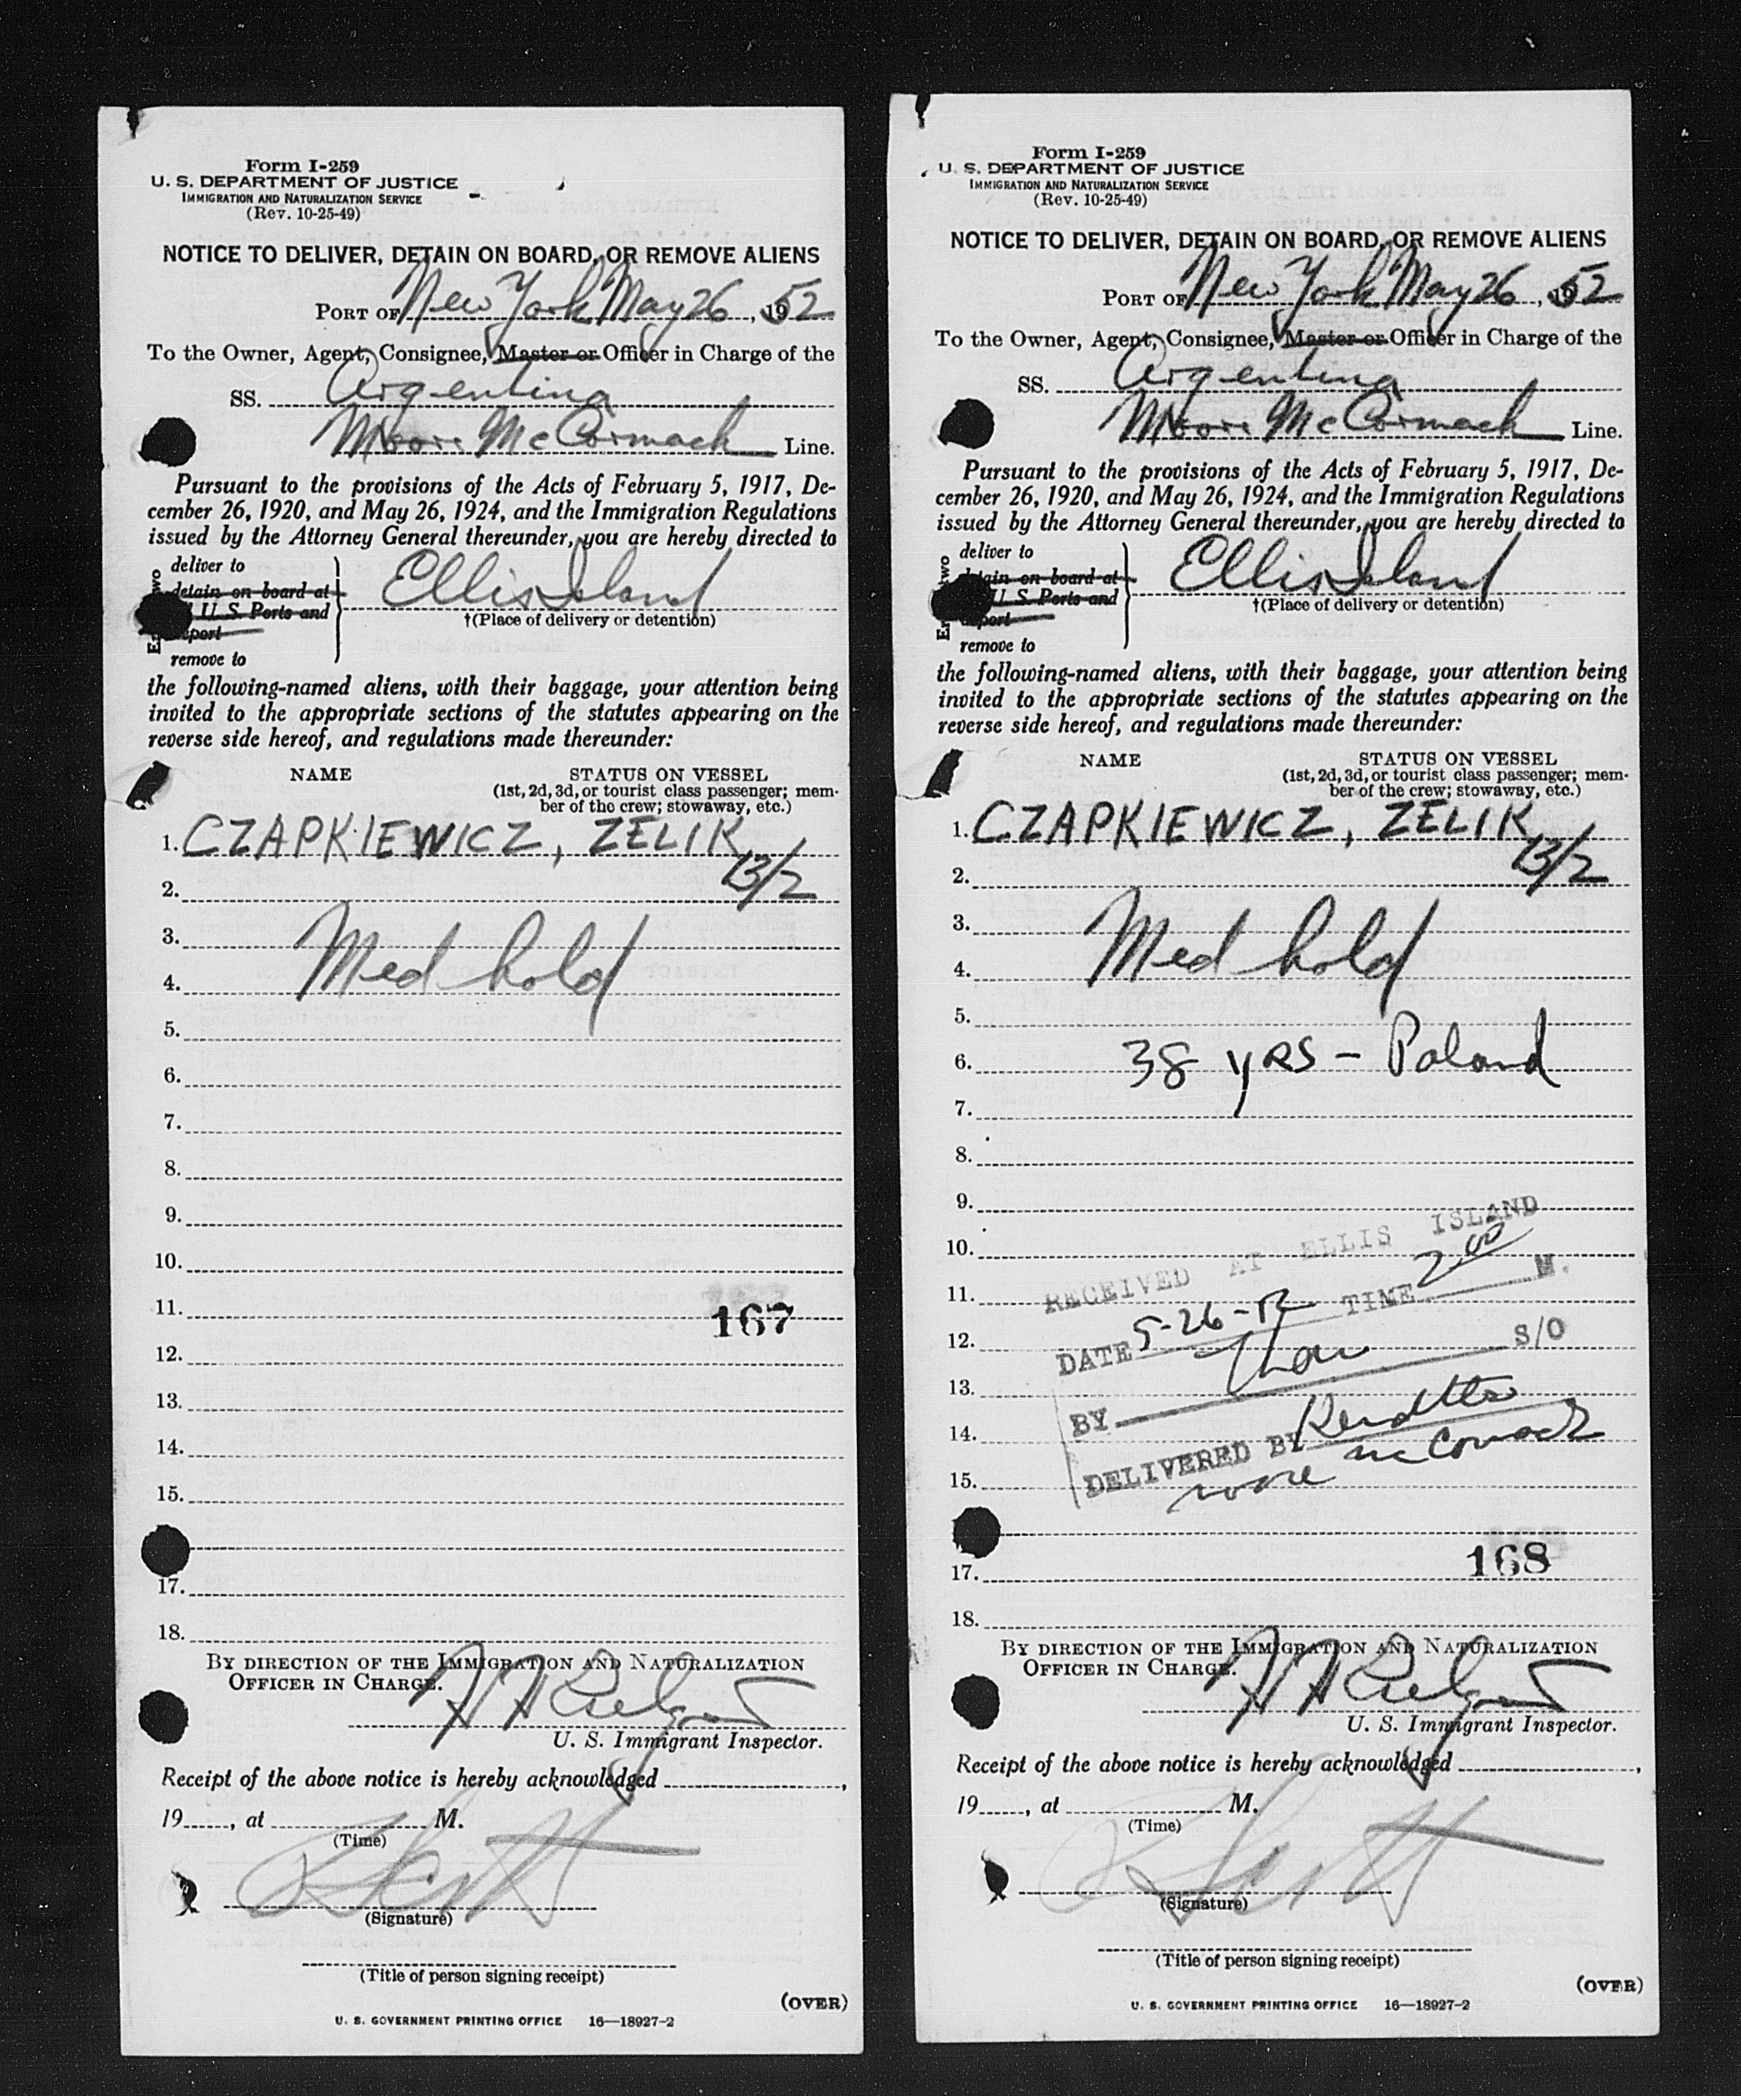 Form I-259
U. S. DEPARTMENT OF JUSTICE
IMMIGRATION AND NATURALIZATION SERVICE
(Rev. 10-25-49)
NOTICE TO DELIVER, DETAIN ON BOARD, OR REMOVE ALIENS
PORT OF New York May 26, 1952
To the Owner, Agent, Consignee, Master or Officer in Charge of the
SS. Argentina
Moore McCormack Line.
Pursuant to the provisions of the Acts of February 5, 1917, De-
cember 26, 1920, and May 26, 1924, and the Immigration Regulations
issued by the Attorney General thereunder, you are hereby directed to
deliver to
detain on board at
U. S. Ports and
remove to
Ellis Island
†(Place of delivery or detention)
the following-named aliens, with their baggage, your attention being
invited to the appropriate sections of the statutes appearing on the
reverse side hereof, and regulations made thereunder:
NAME STATUS ON VESSEL
(1st, 2d, 3d, or tourist class passenger; mem-
ber of the crew; stowaway, etc.)
1. CZAPKIEWICZ, ZELIK
13/2
2.
3.
Med hold
4.
5.
6.
7.
8.
9.
10.
11.
167
12.
13.
14.
15.
17.
18.
BY DIRECTION OF THE IMMIGRATION AND NATURALIZATION
OFFICER IN CHARGE.
U. S. Immigrant Inspector.
Receipt of the above notice is hereby acknowledged ,
19 , at M.
(Time)
(Signature)
(Title of person signing receipt)
(OVER)
U. S. GOVERNMENT PRINTING OFFICE 16—18927-2
Form I-259
U. S. DEPARTMENT OF JUSTICE
IMMIGRATION AND NATURALIZATION SERVICE
(Rev. 10-25-49)
NOTICE TO DELIVER, DETAIN ON BOARD, OR REMOVE ALIENS
PORT OF New York May 26, 1952
To the Owner, Agent, Consignee, Master or Officer in Charge of the
SS. Argentina
Moore McCormack Line.
Pursuant to the provisions of the Acts of February 5, 1917, De-
cember 26, 1920, and May 26, 1924, and the Immigration Regulations
issued by the Attorney General thereunder, you are hereby directed to
deliver to
on board at
U. S. Ports and
remove to
Ellis Island
†(Place of delivery or detention)
the following-named aliens, with their baggage, your attention being
invited to the appropriate sections of the statutes appearing on the
reverse side hereof, and regulations made thereunder:
NAME STATUS ON VESSEL
(1st, 2d, 3d, or tourist class passenger; mem-
ber of the crew; stowaway, etc.)
1. CZAPKIEWICZ, ZELIK
13/2
2.
3.
Med hold
4.
5.
6. 38 yrs - Poland
7.
8.
9.
10.
RECEIVED AT ELLIS ISLAND
11.
DATE 5-26-52 TIME 2.00 M.
12.
13.
BY S/O
14.
DELIVERED BY
15.
168
17.
18.
BY DIRECTION OF THE IMMIGRATION AND NATURALIZATION
OFFICER IN CHARGE.
U. S. Immigrant Inspector.
Receipt of the above notice is hereby acknowledged ,
19 , at M.
(Time)
(Signature)
(Title of person signing receipt)
(OVER)
U. S. GOVERNMENT PRINTING OFFICE 16—18927-2